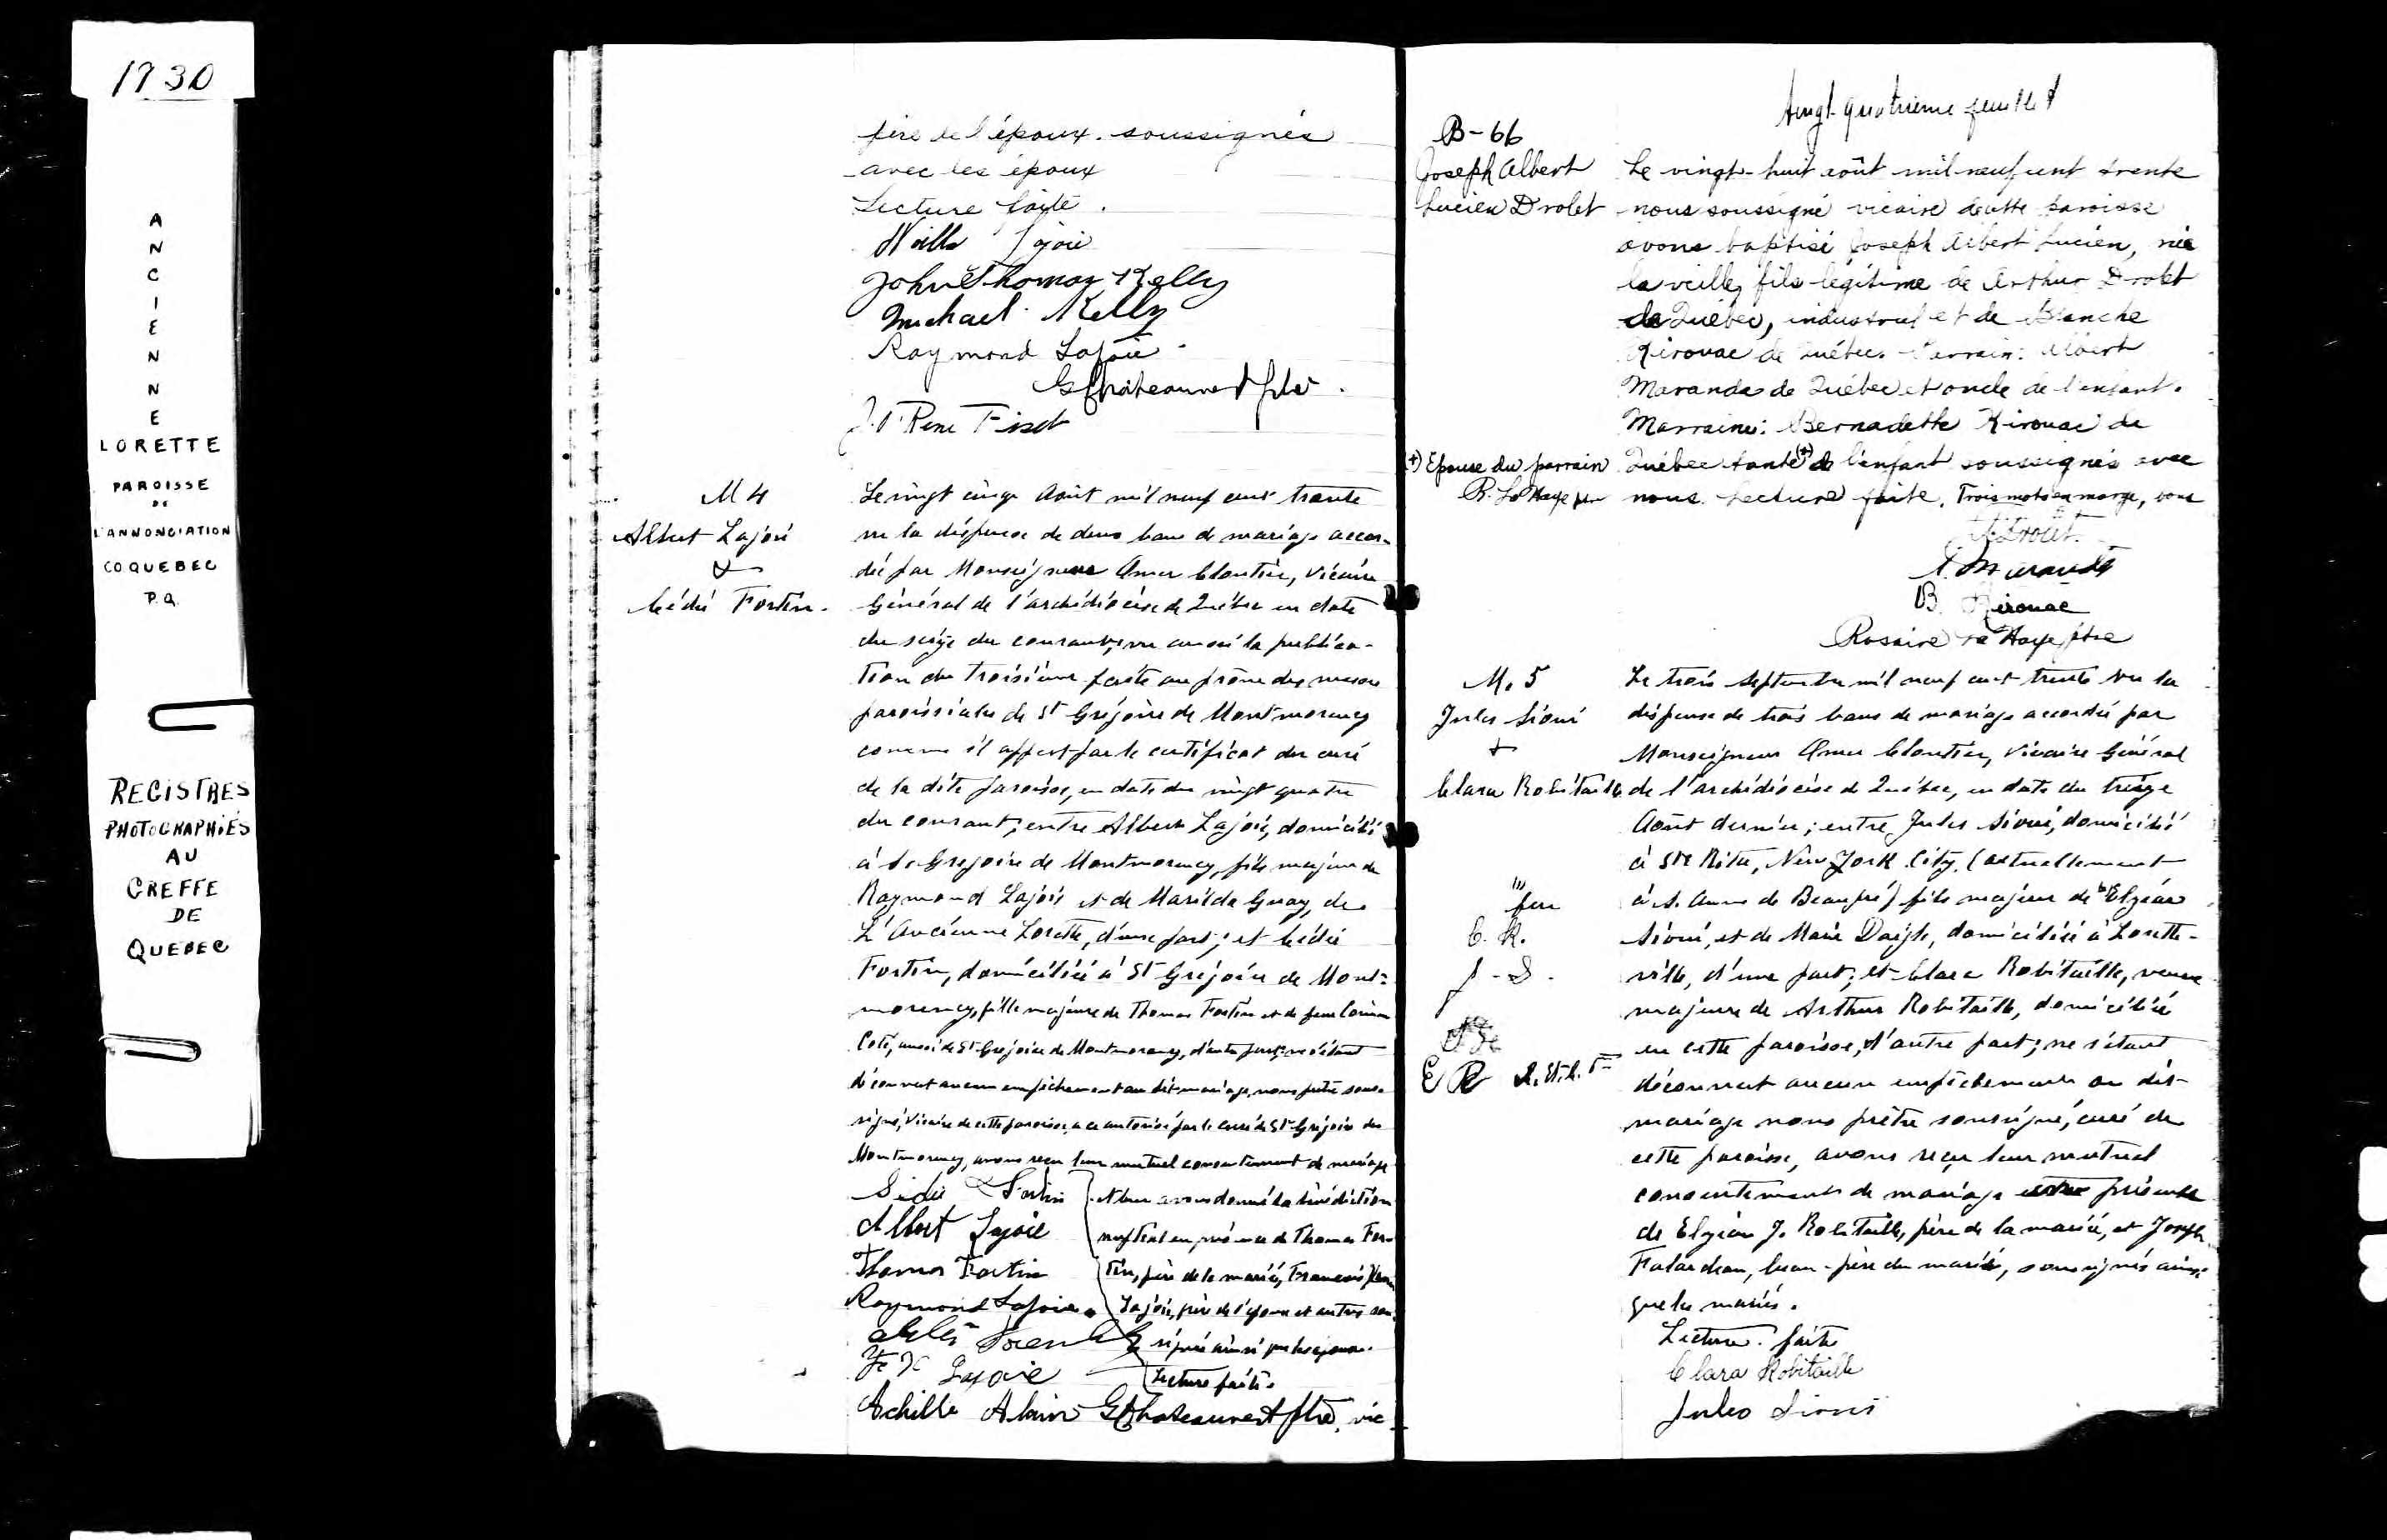 1930
ANCIENNE
LORETTE
PAROISSE
DE
L'ANNONCIATION
CO QUEBEC
P.Q.
REGISTRES
PHOTOGRAPHIÉS
AU
GREFFE
DE
QUEBEC
père de l'époux soussignés
avec les époux
Lecture faite.
Lajoie
John Thomas Kelly
Michael Kelly
Raymond Lajoie
G Chateauvert ptre.
René Fiset
M 4
Albert Lajoie
&
Cédié Fortin.
Le vingt cinq Août mil neuf cent trente
vu la dispense de deux bans de mariage accor-
dée par Monseigneur Omer Cloutier, Vicaire
Général de l'archidiocèse de Québec en date
du seize du courant, vu aussi la publica-
tion du troisième faite au prône des messes
paroissiales de St Grégoire de Montmorency
comme il appert par le certificat du curé
de la dite paroisse, en date du vingt quatre
du courant; entre Albert Lajoie, domicilié
à St Grégoire de Montmorency, fils majeur de
Raymond Lajoie et de Marilda Guay, de
L'Ancienne Lorette, d'une part; et Cédié
Fortin, domiciliée à St Grégoire de Mont-
morency, fille majeure de Thomas Fortin et de feue
Coté, aussi de St Grégoire de Montmorency, d'autre part; ne s'étant
découvert aucun empêchement au dit mariage, nous prêtre sous-
signé, Vicaire de cette paroisse, a ce autorisé par le curé de St Grégoire de
Montmorency, avons reçu leur mutuel consentement de mariage
et leur avons donné la bénédiction
nuptiale en présence de Thomas For-
tin, père de la mariée, François
Lajoie, père de l'époux et autres sous-
signés ainsi que les époux.
Lecture faite.
Fortin
Albert Lajoie
Thomas Fortin
Raymond Lajoie
Lajoie
Achille Alain G Chateauvert ptre, vic
Vingt-quatrième feuillet
B-66
Joseph Albert
Lucien Drolet
Le vingt-huit août mil-neuf cent trente
nous soussigné vicaire de cette paroisse
avons baptisé Joseph Albert Lucien, né
la veille, fils légitime de Arthur Drolet
de Québec, industriel et de Blanche
Kirouac de Québec. Parrain: Albert
Maranda de Québec et oncle de l'enfant.
Marraine: Bernadette Kirouac de
Québec tante (+) de l'enfant soussignés avec
nous. Lecture faite. Trois mots en marge, bons
(+) Epouse du parrain
R. La Haye ptre
A. Drolet.
A. Maranda
B. Kirouac
Rosaire La Haye ptre
M. 5
Jules Sioui
+
Clara Robitaille
Le trois septembre mil neuf cent trente vu la
dispense de trois bans de mariage accordée par
Monseigneur Omer Cloutier, Vicaire Général
de l'archidiocèse de Québec, en date du treize
Août dernier; entre Jules Sioui, domicilié
à Ste Rita, New York City, (actuellement
à S. Anne de Beaupré) fils majeur de Elzéar
Sioui, et de Marie Daigle, domiciliée à Lorette-
ville, d'une part; et Clara Robitaille, veuve
majeure de Arthur Robitaille, domiciliée
en cette paroisse, d'autre part; ne s'étant
découvert aucun empêchement au dit
mariage nous prêtre soussigné, curé de
cette paroisse, avons reçu leur mutuel
consentement de mariage présence
de Elzéar J. Robitaille, père de la mariée, et Joseph
Falardeau, beau-père du marié, soussignés ainsi
que les mariés.
feu
C. R.
J - S.
E R
Lecture faite
Clara Robitaille
Jules Sioui